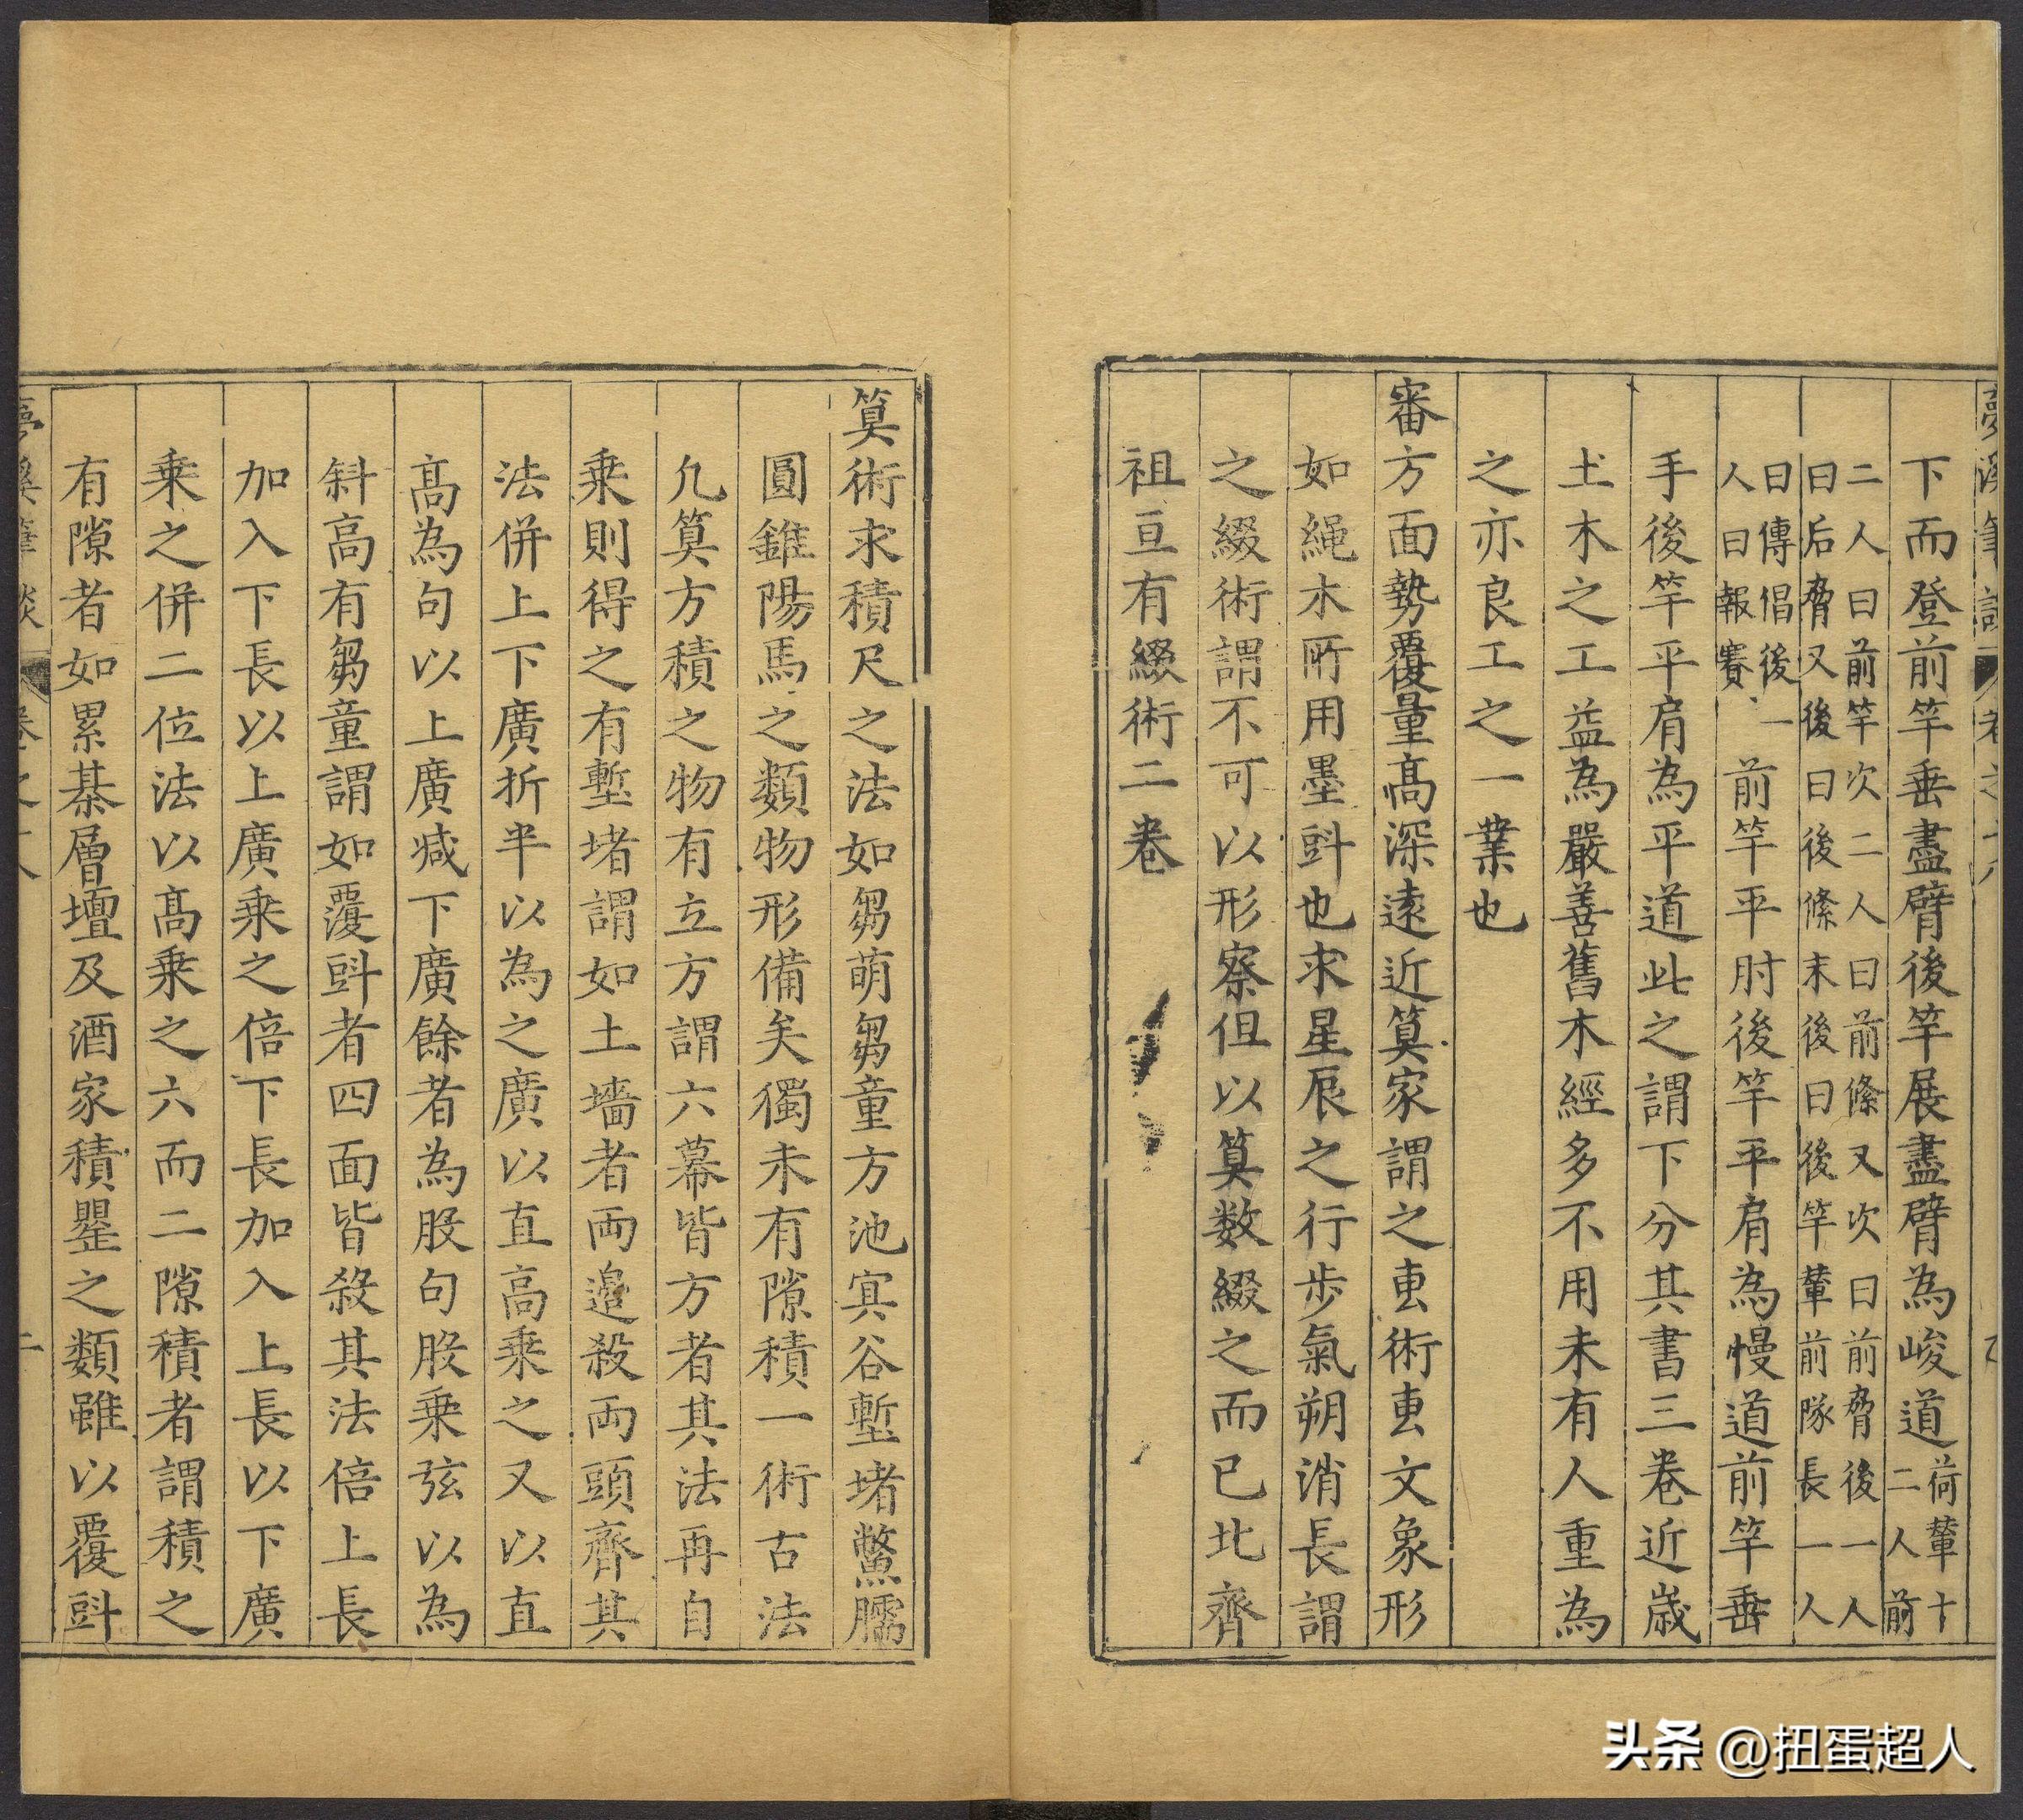 夢溪筆談 卷之十八
下而登前竿垂盡臂後竿展盡臂為峻道荷輦十二人前
二人曰前竿次二人曰前絛又次曰前脅後一人
曰后脅又後曰後絛末後曰後竿輦前隊長一人
曰傳倡後一人曰報賽前竿平肘後竿平肩為慢道前竿垂
手後竿平肩為平道此之謂下分其書三卷近歲
土木之工益為嚴善舊木經多不用未有人重為
之亦良工之一業也
審方面勢覆量高深遠近算家謂之叀術叀文象形
如繩木所用墨㪷也求星辰之行步氣朔消長謂
之綴術謂不可以形察但以算数綴之而已北齊
祖亘有綴術二卷
算術求積尺之法如芻萌芻童方池冥谷塹堵鱉臑
圓錐陽馬之類物形備矣獨未有隙積一術古法
凡算方積之物有立方謂六幕皆方者其法再自
乗則得之有塹堵謂如土墻者両邉殺両頭齊其
法併上下廣折半以為之廣以直高乗之又以直
髙為句以上廣减下廣餘者為股句股乗弦以為
斜高有芻童謂如覆㪷者四面皆殺其法倍上長
加入下長以上廣乗之倍下長加入上長以下廣
乗之併二位法以髙乗之六而二隙積者謂積之
有隙者如累棊層壇及酒家積罌之類雖以覆㪷
夢溪筆談 卷之十八 二
头条 @扭蛋超人